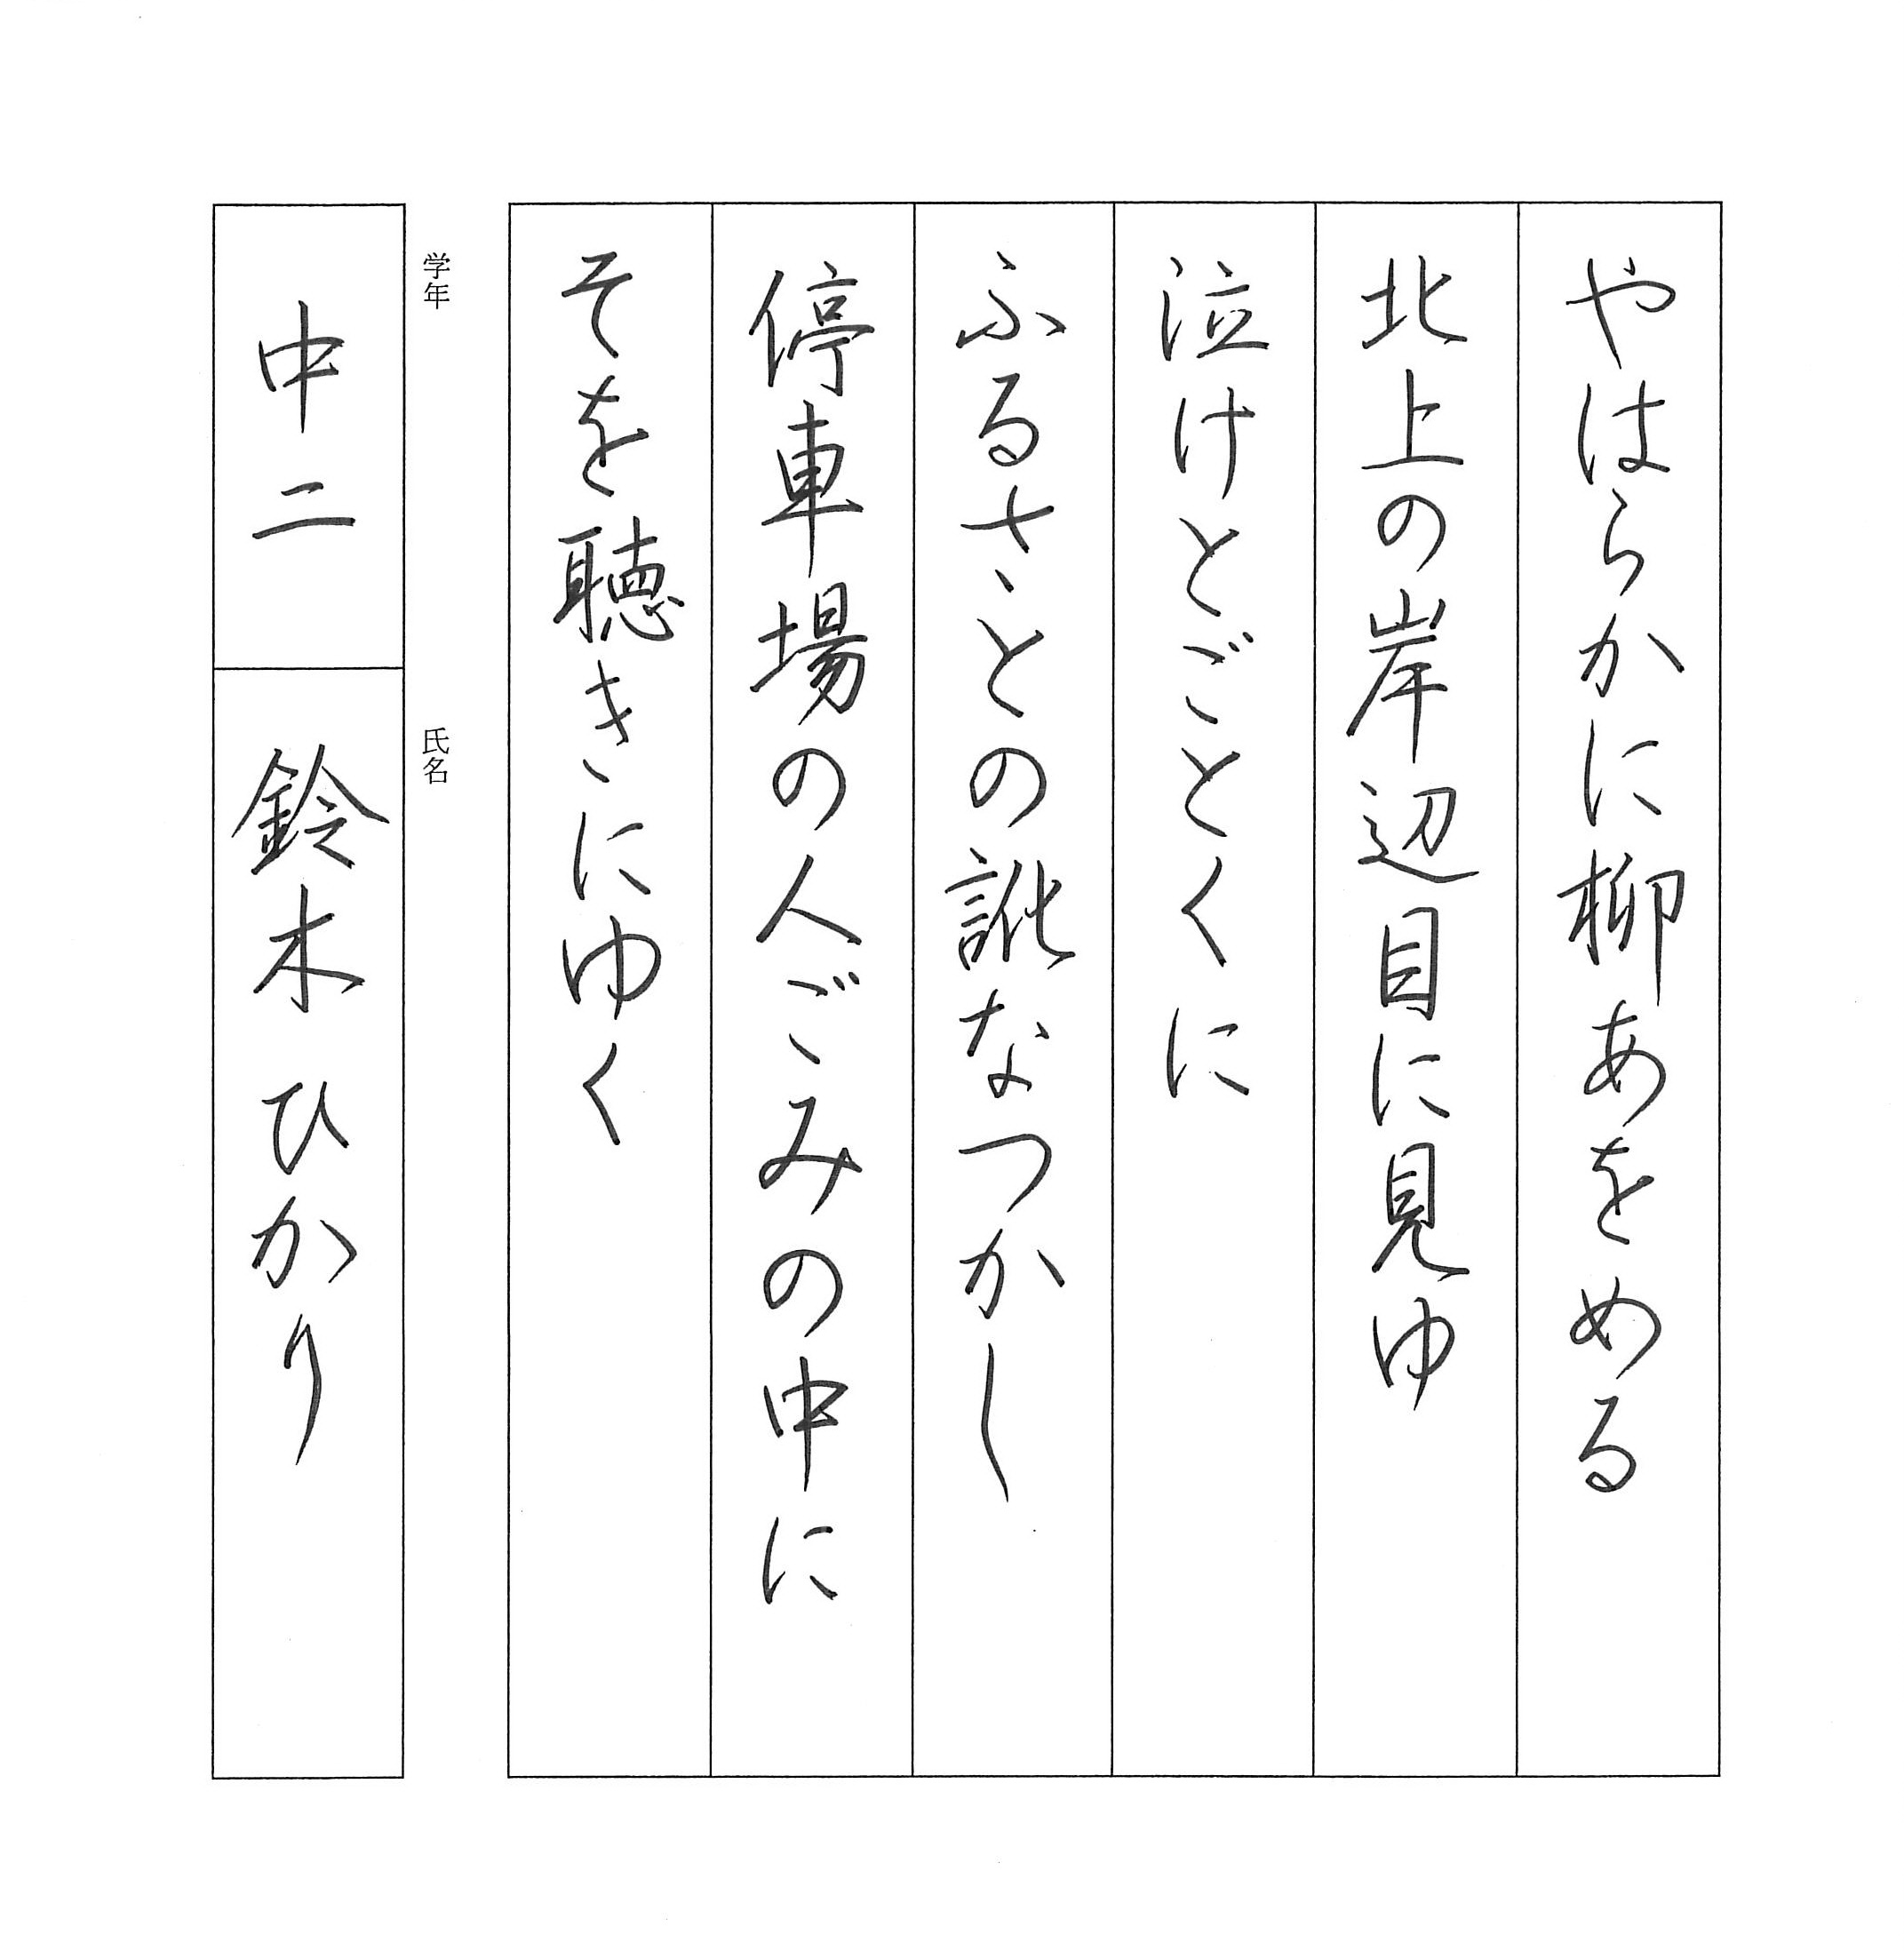 やはらかに柳あをめる
北上の岸辺目に見ゆ
泣けとごとくに
ふるさとの訛なつかし
停車場の人ごみの中に
そを聴きにゆく
学年
中二
氏名
鈴木ひかり